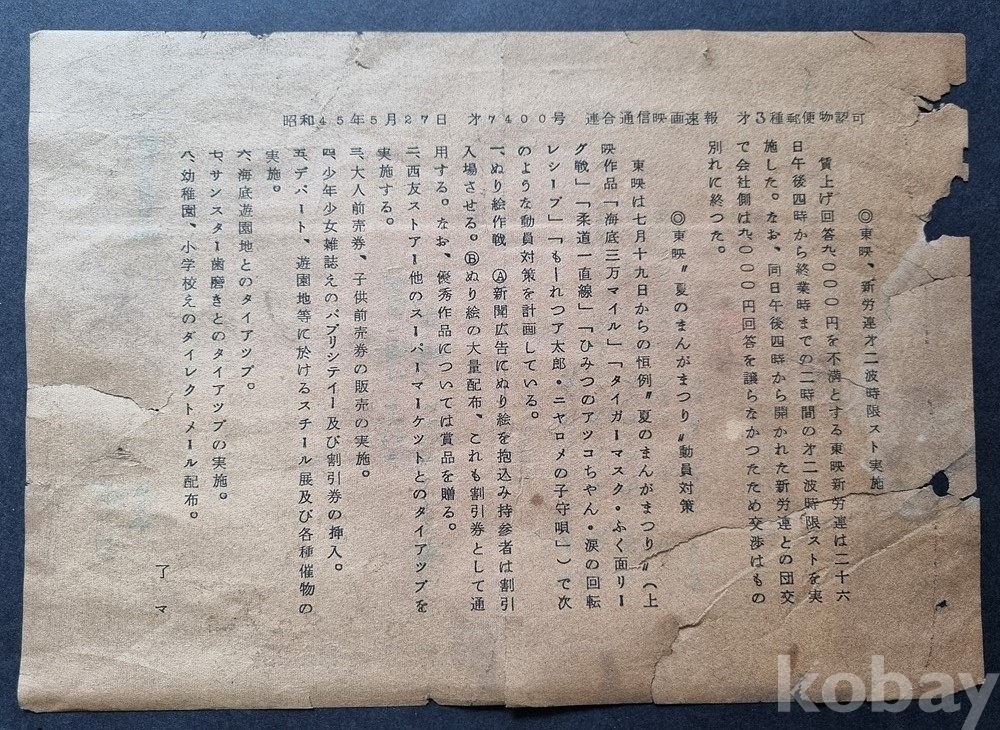 昭和45年5月27日　才7400号　連合通信映画速報　才3種郵便物認可
◎東映、新労連才二波時限スト実施
賃上げ回答九〇〇〇円を不満とする東映新労連は二十六
日午後四時から終業時までの二時間の才二波時限ストを実
施した。なお、同日午後四時から開かれた新労連との団交
で会社側は九〇〇〇円回答を譲らなかつたため交渉はもの
別れに終つた。
◎東映〝夏のまんがまつり〟動員対策
東映は七月十九日からの恒例〝夏のまんがまつり〟（上
映作品「海底三万マイル」「タイガーマスク・ふく面リー
グ戦」「柔道一直線」「ひみつのアツコちやん・涙の回転
レシーブ」「もーれつア太郎・ニヤロメの子守唄」）で次
のような動員対策を計画している。
一、ぬり絵作戦　Ⓐ新聞広告にぬり絵を抱込み持参者は割引
入場させる。Ⓑぬり絵の大量配布、これも割引券として通
用する。なお、優秀作品については賞品を贈る。
二、西友ストアー他のスーパーマーケツトとのタイアツプを
実施する。
三、大人前売券、子供前売券の販売の実施。
四、少年少女雑誌えのパブリシテイー及び割引券の挿入。
五、デパート、遊園地等に於けるスチール展及び各種催物の
実施。
六、海底遊園地とのタイアツプ。
七、サンスター歯磨きとのタイアツプの実施。
八、幼稚園、小学校えのダイレクトメール配布。
了　マ
kobay